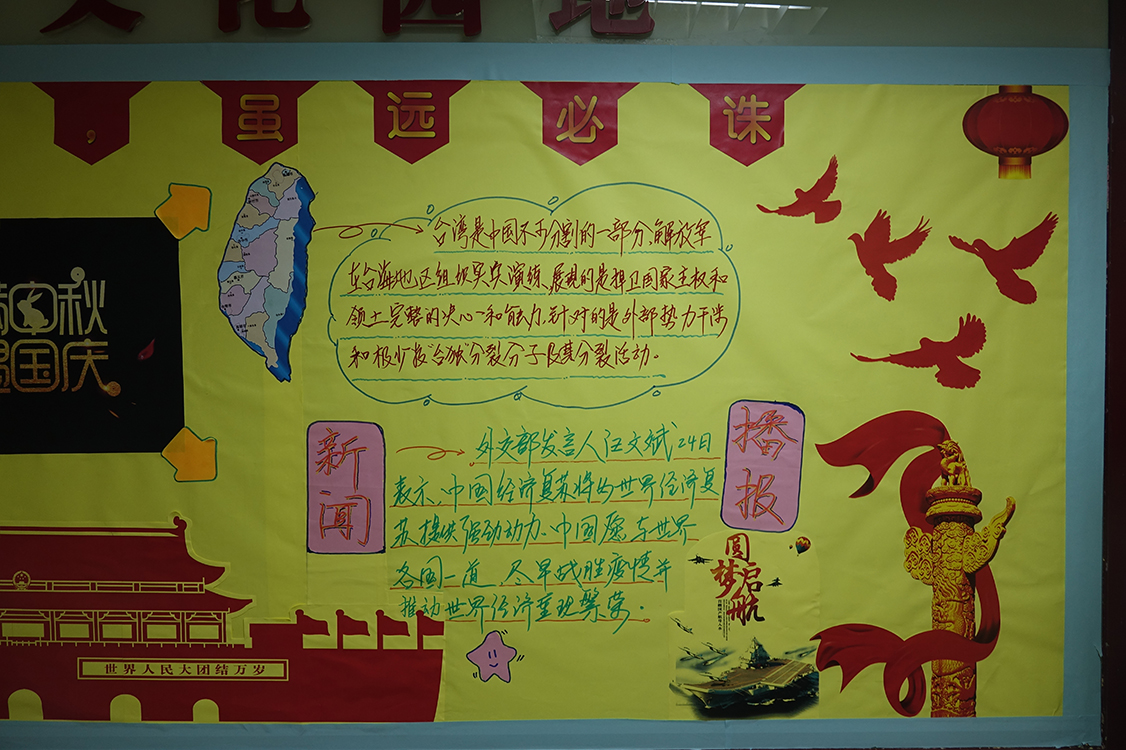 文化园地
，虽远必诛
台湾是中国不可分割的一部分、解放军
在台海地区组织实实演练、展现的是捍卫国家主权和
领土完整的决心和能力,针对的是外部势力干涉
和极少数台独分裂分子及其分裂活动.
秋
国庆
新闻
播报
外交部发言人汪文斌24日
表示,中国经济复苏将为世界经济复
苏提供强劲动力.中国愿与世界
各国一道,尽早战胜疫情并
推动世界经济重现繁荣.
圆梦
启航
世界人民大团结万岁